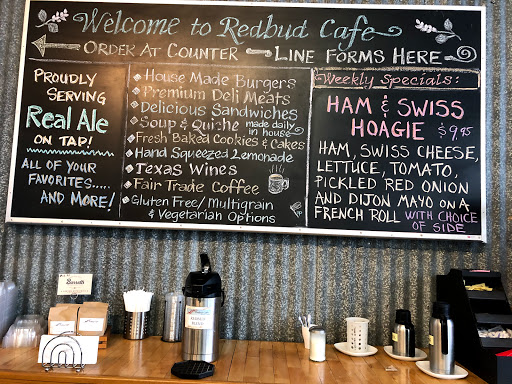 Welcome to Redbud Cafe
Order At Counter
Line Forms Here
Proudly
Serving
Real Ale
on tap!
All of your
favorites.....
and more!
House Made Burgers
Premium Deli Meats
Delicious Sandwiches
Soup & Quiche made daily
in house
Fresh Baked Cookies & Cakes
Hand Squeezed Lemonade
Texas Wines
Fair Trade Coffee
Gluten Free/Multigrain
& Vegetarian Options
Weekly Specials:
Ham & Swiss
Hoagie $9.95
Ham, Swiss Cheese,
Lettuce, Tomato,
Pickled Red Onion
and Dijon Mayo on a
French Roll with choice
of side